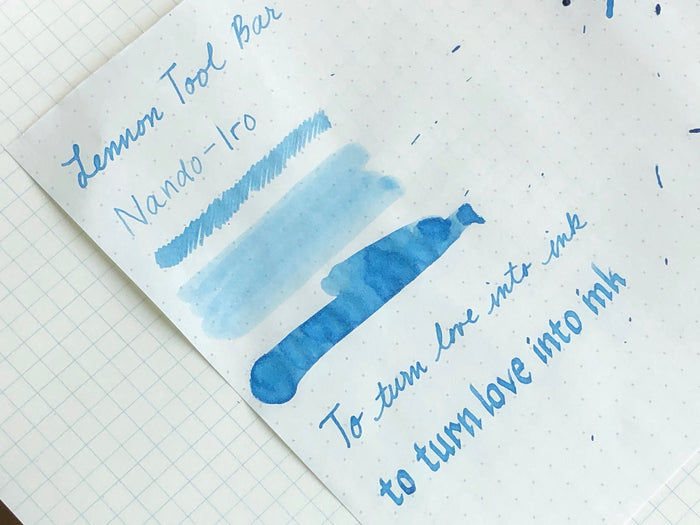 Lennon Tool Bar
Nando-Iro
To turn love into ink
to turn love into ink